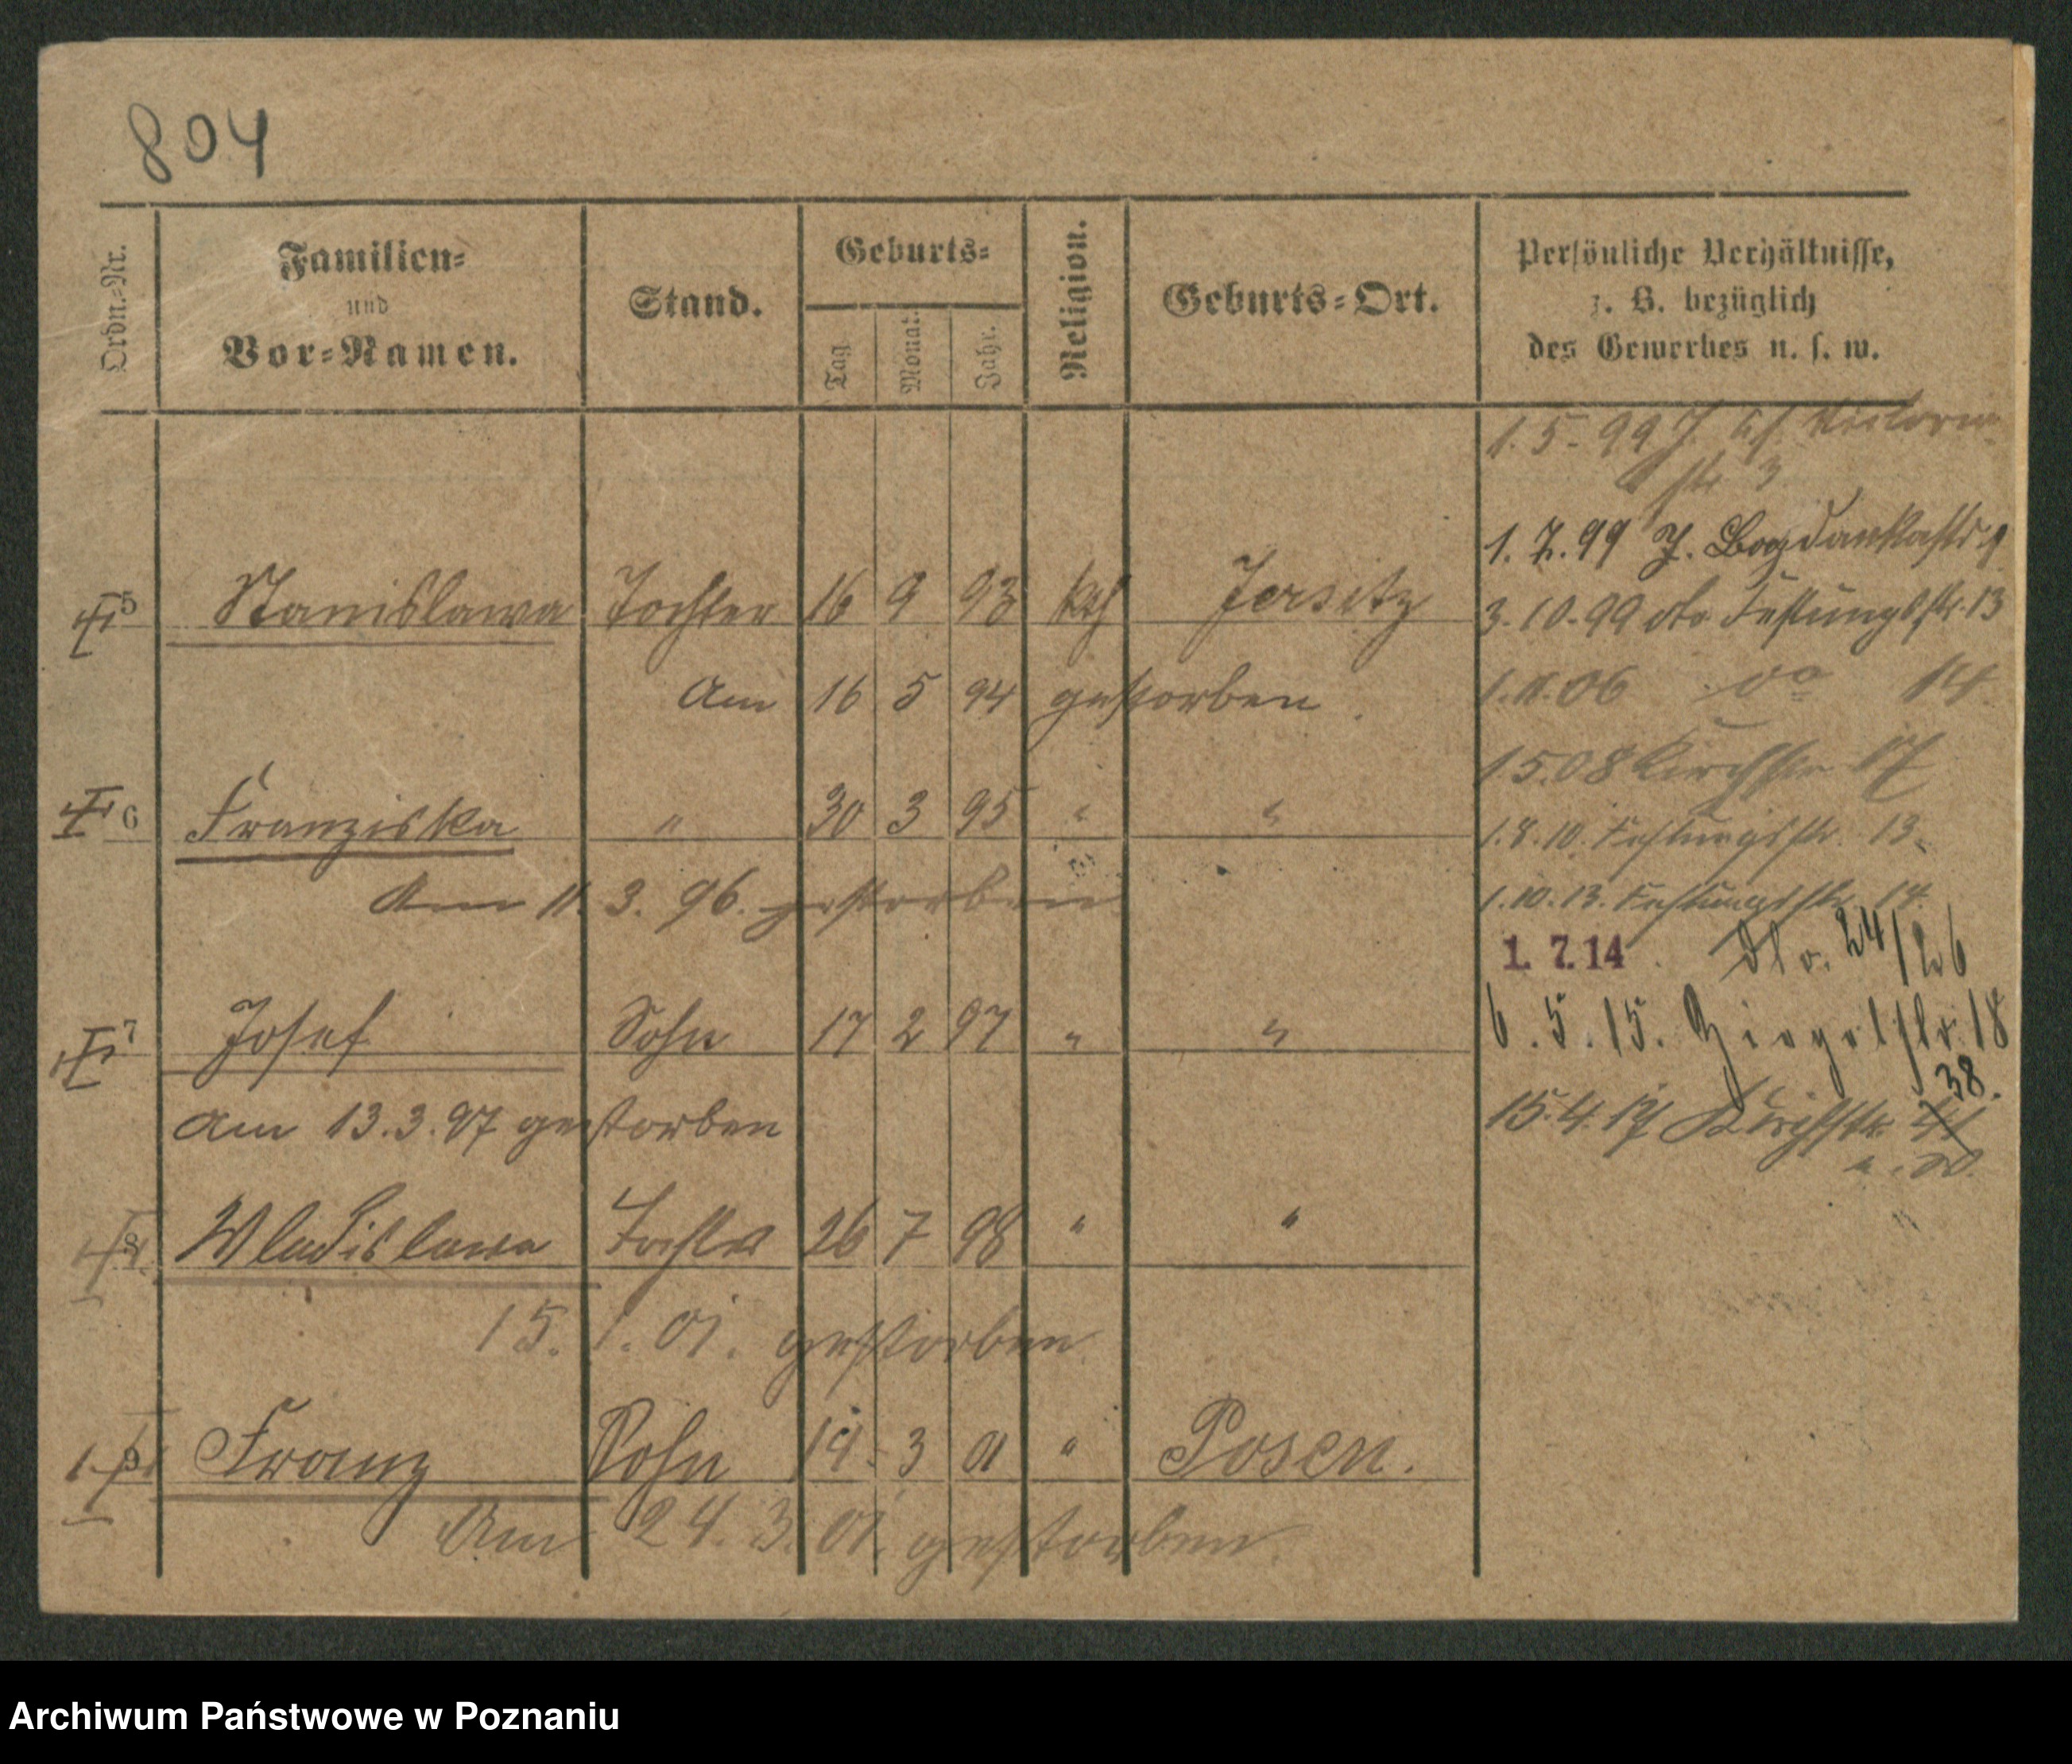 804
Ordn.-Nr.
Familien-
und
Vor-Namen.
Stand.
Geburts-
Tag.
Monat.
Jahr.
Religion.
Geburts-Ort.
Persönliche Verhältnisse,
z. B. bezüglich
des Gewerbes u. s. w.
1. 5. 99 J.
str 3
1. 7. 99 J. Bogdankastr
5 Stanislawa Tochter 16 9 93 kth Jersitz
3. 10. 99 dto Festungsstr. 13
Am 16 5 94 gestorben.
1. 11. 06 do 14.
1 5. 08 Kirchstr 17
6 Franziska " 30 3 95 " "
1. 8. 10. Festungsstr. 13.
Am 11. 3. 96. gestorben
1. 10. 13. Festungsstr. 14.
1. 7. 14. 24/26
7 Josef Sohn 17 2 97 " "
6. 5. 15. Ziegelstr. 18
38.
Am 13. 3. 97 gestorben
15. 4. 17 Kirchstr. 41
8 Wladislawa Tochter 26 7 98 " "
15. 1. 01. gestorben
9 Franz Sohn 14. 3 01 " Posen.
Am 24. 3. 01. gestorben
Archiwum Państwowe w Poznaniu